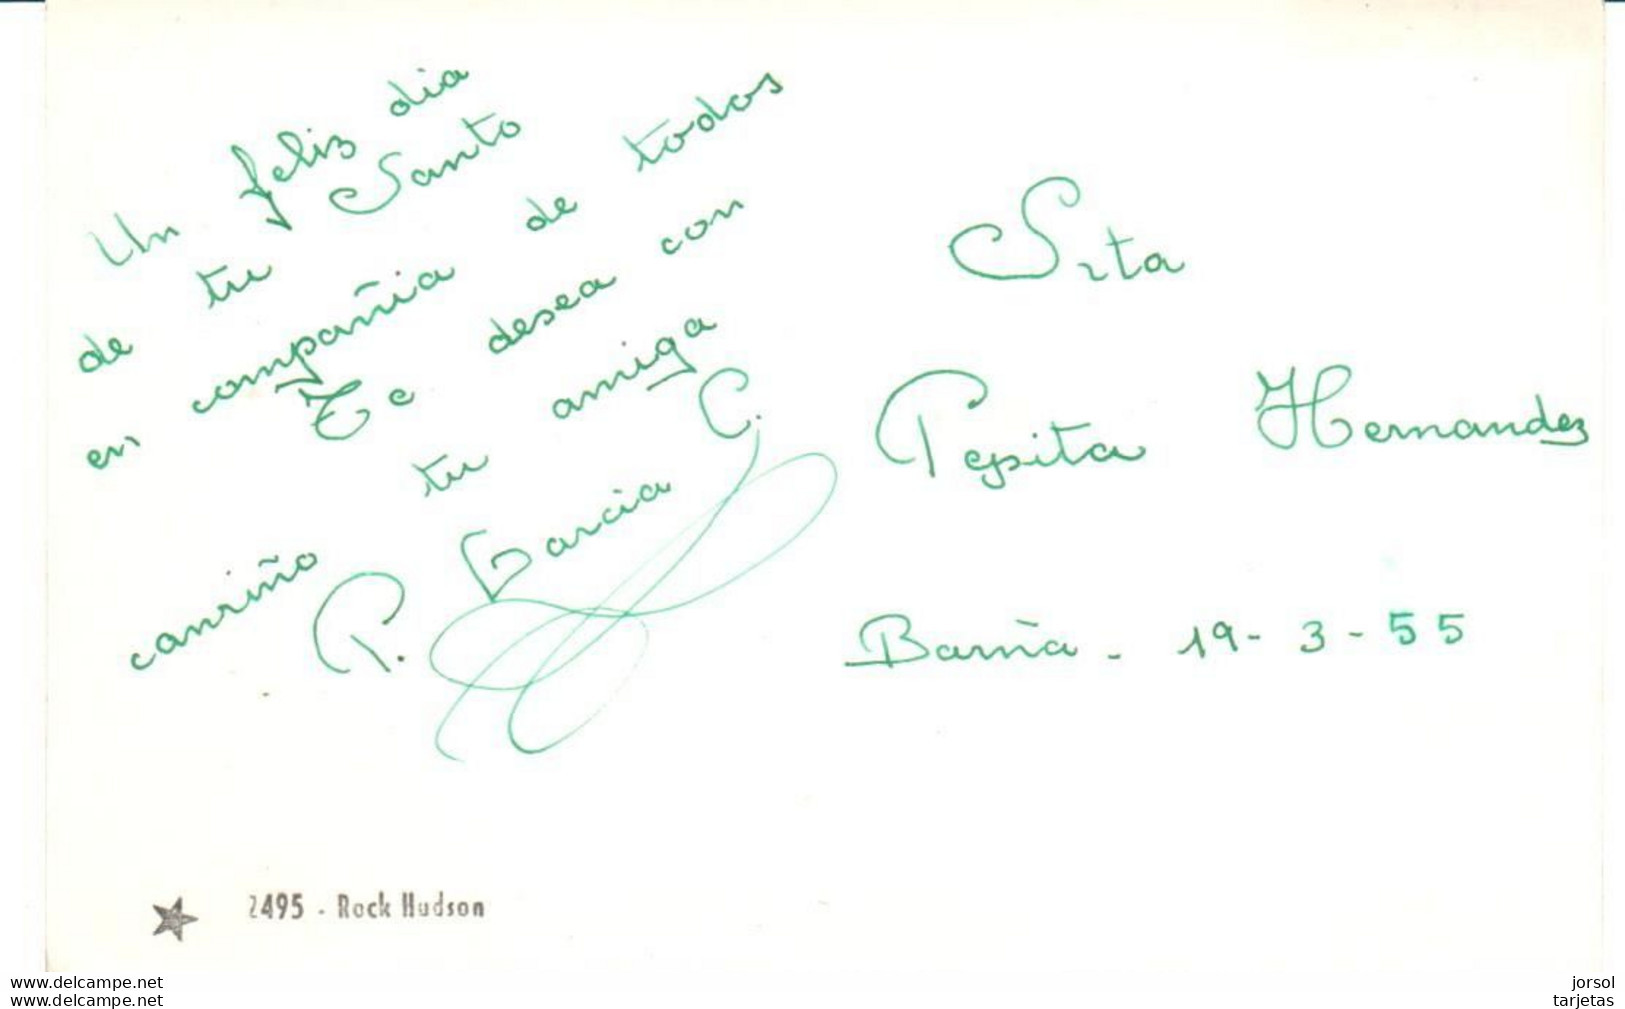 Un feliz dia
de tu Santo
en compañia de todos
Te desea con
cariño tu amiga
P. Garcia C.
Srta
Pepita Hernandez
Barña - 19-3-55
2495 - Rock Hudson
www.delcampe.net
www.delcampe.net
jorsol
tarjetas